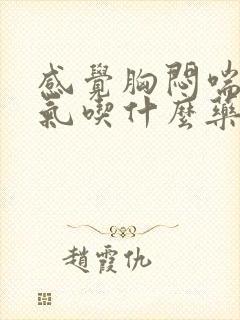 感覺胸悶喘
氣喫什麼藥
趙霞仇